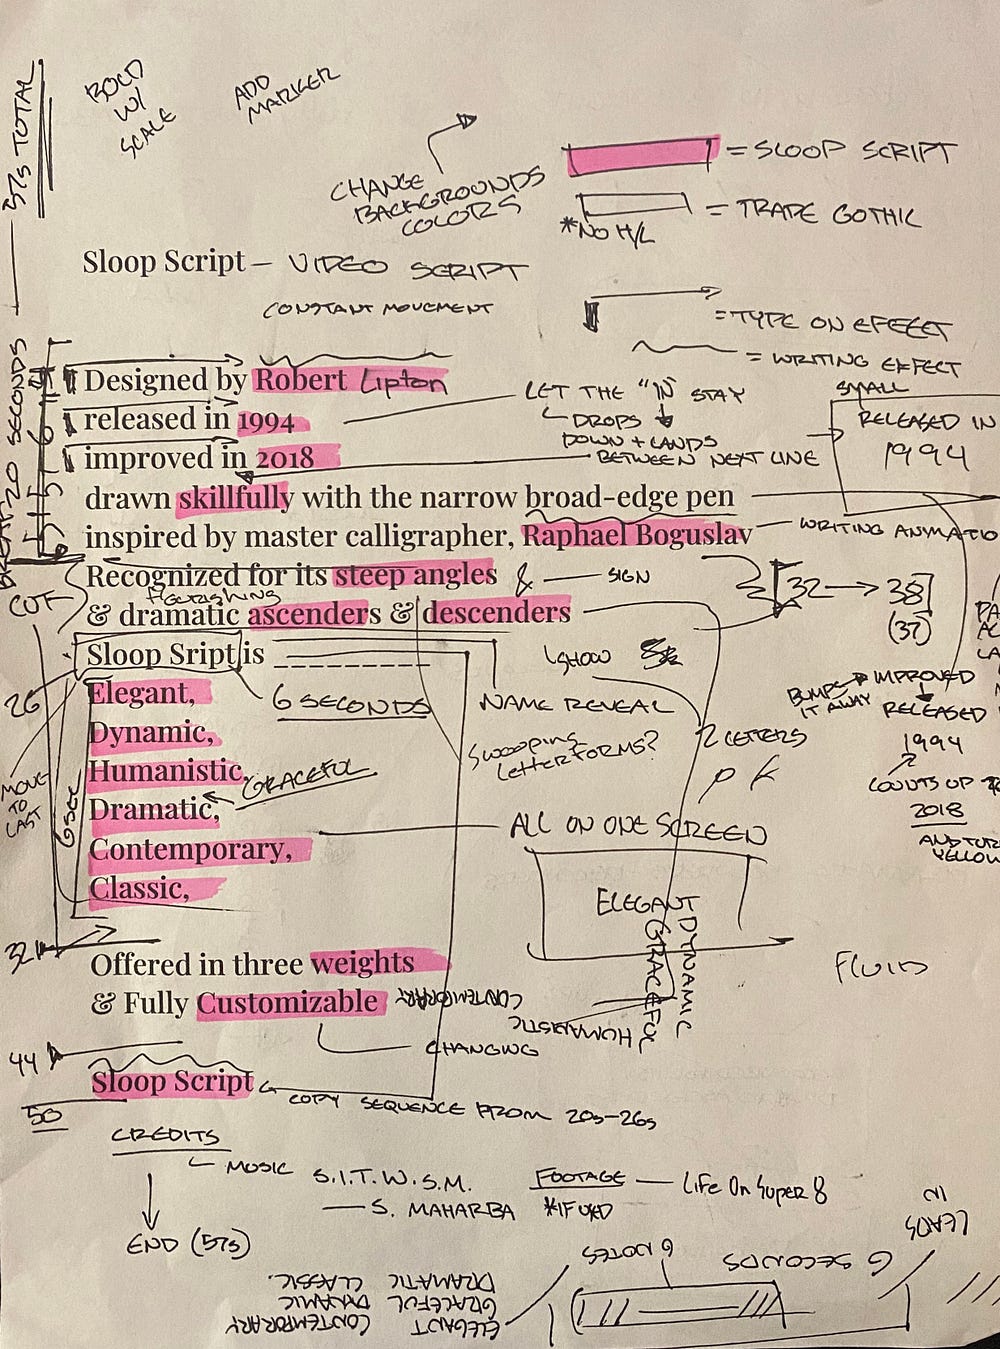 57s TOTAL
BOLD
W/
SCALE
ADD
MARKER
CHANGE
BACKGROUNDS
COLORS
= SLOOP SCRIPT
= TRADE GOTHIC
*NO H/L
Sloop Script – VIDEO SCRIPT
CONSTANT MOVEMENT
= TYPE ON EFFECT
= WRITING EFFECT
20 SECONDS
Designed by Robert Lipton
released in 1994
improved in 2018
drawn skillfully with the narrow broad-edge pen
inspired by master calligrapher, Raphael Boguslav
LET THE "IN" STAY
DROPS
DOWN + LANDS
BETWEEN NEXT LINE
SMALL
RELEASED IN
1994
WRITING ANIMATIO
CUT
Recognized for its steep angles & — SIGN
flourishing
& dramatic ascenders & descenders
32 → 38
(37)
Sloop Sript is
6 SECONDS
SHOW
NAME REVEAL
Swooping
letterforms?
2 LETTERS
P K
BUMPS
IT AWAY
IMPROVED
RELEASED
1994
COUNTS UP
2018
AND TUR
YELLOW
26
MOVE
TO
LAST
6 SEC
Elegant,
Dynamic,
Humanistic,
GRACEFUL
Dramatic,
Contemporary,
Classic,
ALL ON ONE SCREEN
ELEGANT
DYNAMIC
GRACEFUL
HUMANISTIC
CONTEMPORARY
FLUID
32
Offered in three weights
& Fully Customizable
CHANGING
44
Sloop Script
COPY SEQUENCE FROM 20s-26s
50
CREDITS
MUSIC S.I.T.W.S.M.
— S. MAHARBA
FOOTAGE — Life On Super 8
END (57s)
LEADS
IN
6 SECONDS
6 NOTES
ELEGANT CONTEMPORARY
GRACEFUL DYNAMIC
DRAMATIC CLASSIC.